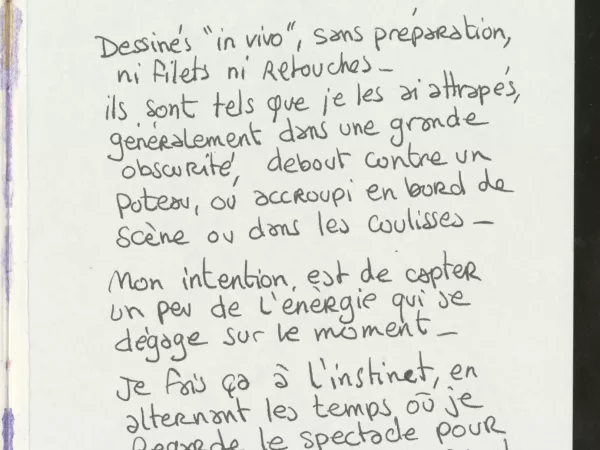 Dessinés "in vivo", sans préparation,
ni filets ni retouches -
ils sont tels que je les ai attrapés,
généralement dans une grande
obscurité, debout contre un
poteau, où accroupi en bord de
scène ou dans les coulisses -
Mon intention, est de capter
un peu de l'énergie qui se
dégage sur le moment -
Je fais ça à l'instinct, en
alternant les temps où je
regarde le spectacle pour